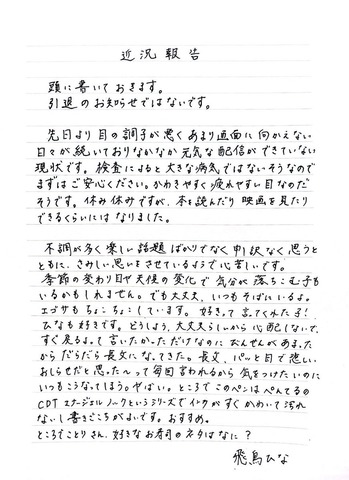 近況報告
頭に書いておきます。
引退のお知らせではないです。
先日より目の調子が悪くあまり画面に向かえない
日々が続いておりなかなか元気な配信ができていない
現状です。検査によると大きな病気ではないそうなので
まずはご安心ください。かわきやすく疲れやすい目なのだ
そうです。休み休みですが、本を読んだり映画を見たり
できるくらいにはなりました。
不調が多く楽しい話題ばかりでなく申し訳なく思うと
ともに、さみしい思いをさせているようで心苦しいです。
季節の変わり目や天候の変化で気分が落ちこむ子も
いるかもしれません。でも大丈夫、いつもそばにいるよ。
エゴサもちょこちょこしています。好きって言ってくれた子!
ひなも好きです。どうしよう、大丈夫らしいから心配しないで、
すぐ戻るよって言いたかっただけなのになんせんがあまった
からだらだら長文になってきた。長文、パッと目で悲しい
おしらせだと思ったへって毎回言われるから気をつけたいのに
いつもこうなってしまう。やばい。ところでこのペンはぺんてるの
エナージェル ノックというシリーズでインクがすぐかわいて汚れ
ないし書きごこちがよいです。おすすめ。
ところでことりさん、好きなお寿司のネタはなに?
飛鳥ひな